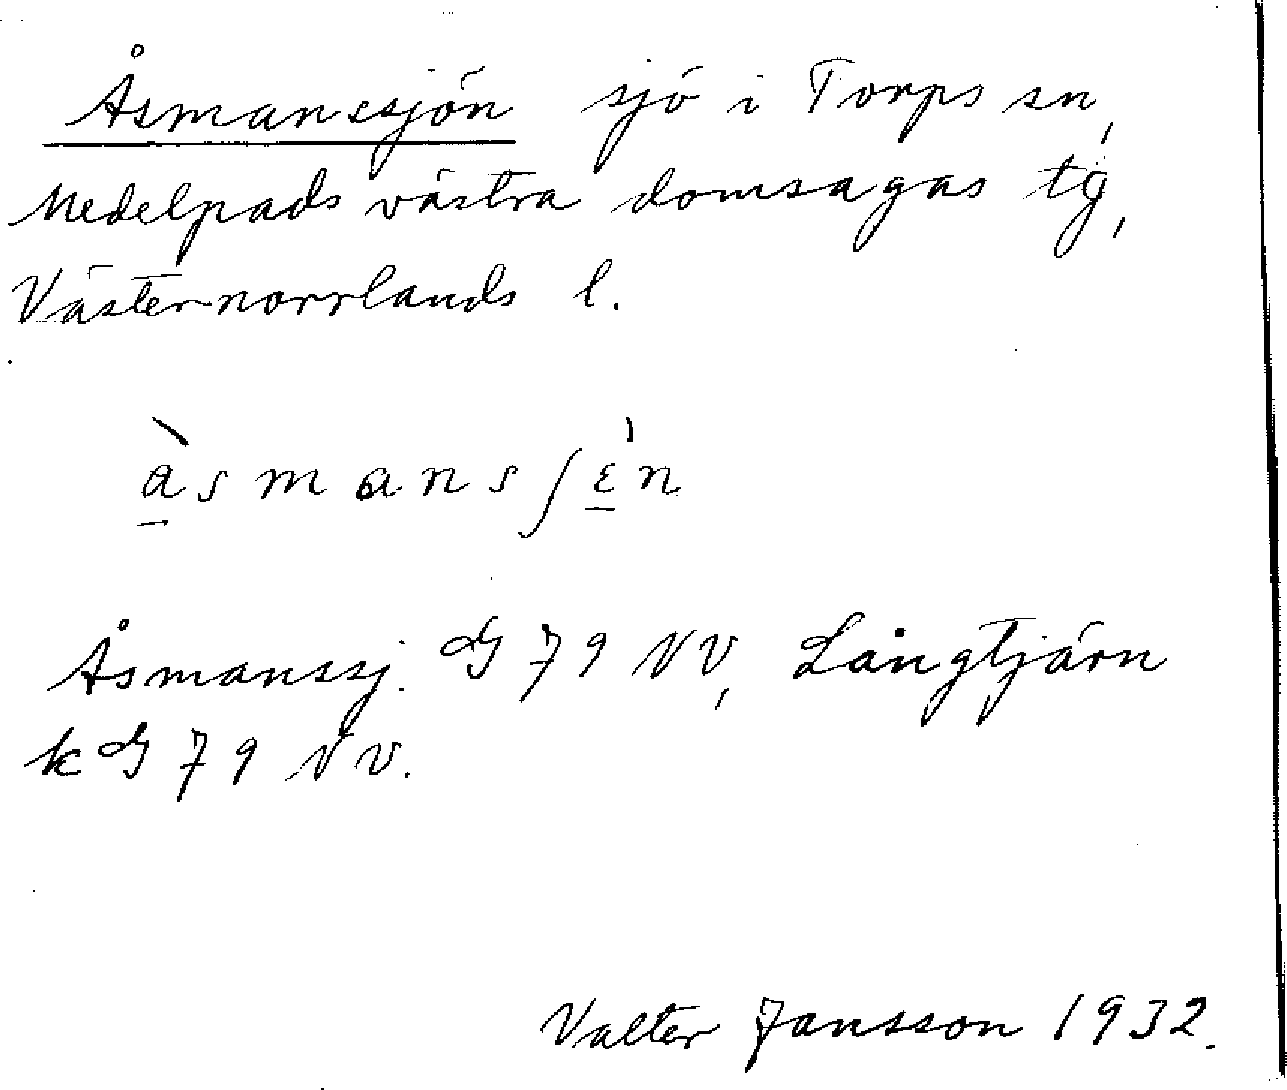 Åsmanssjön sjö i Torps sn,
Medelpads västra domsagas tg,
Västernorrlands l.
àsmansʃɛ̀n
Åsmanssj. G 79 NV, Långtjärn
kG 79 NV.
Valter Jansson 1932.